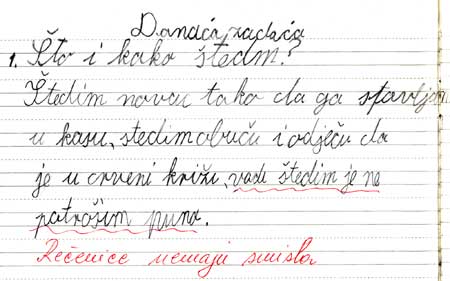 Danaća zadaća
1. Što i kako štedim?
Štedim novac tako da ga stavljam
u kasu, stedim obuču i odječu da
je u crveni križu, vadu štedim je ne
patrošim puna.
Rečenice nemaju smisla